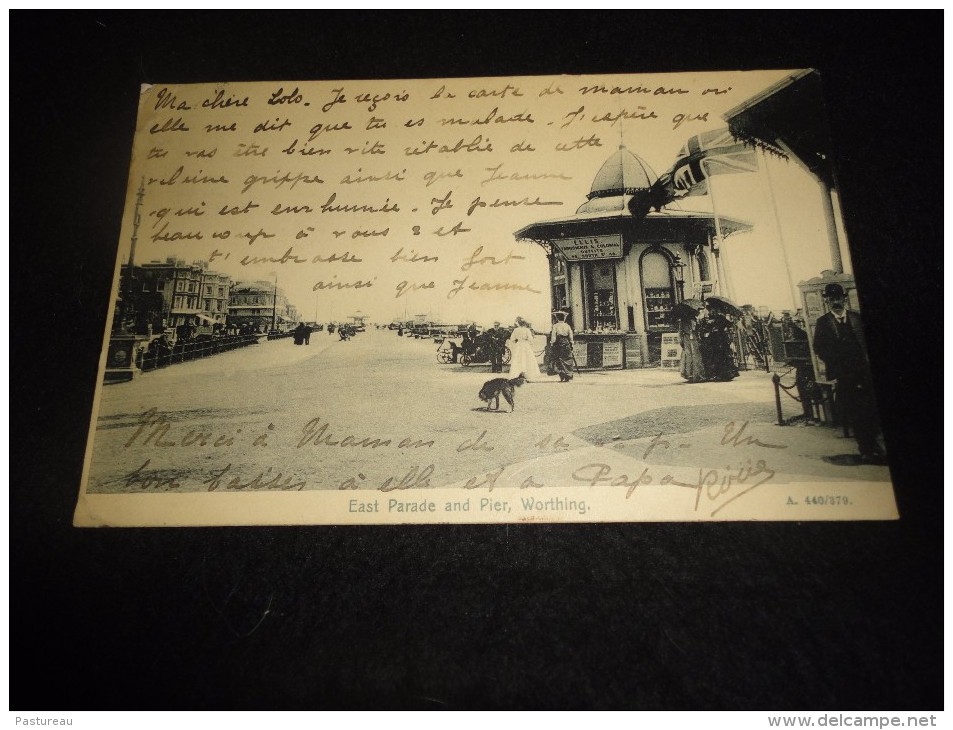 Ma chère Lolo. Je reçois la carte de maman où
elle me dit que tu es malade. J'espère que
tu vas être bien vite rétablie de cette
vilaine grippe ainsi que Jeanne
qui est enrhumée. Je pense
beaucoup à vous 2 et
t'embrasse bien fort
ainsi que Jeanne
ELLIS
& COLONIAL
OUTFITS
SOUTH ST
Merci à Maman de sa c.p. Un
bon baiser à elle et à Papa
East Parade and Pier, Worthing.
A. 440/379.
Pastureau
www.delcampe.net